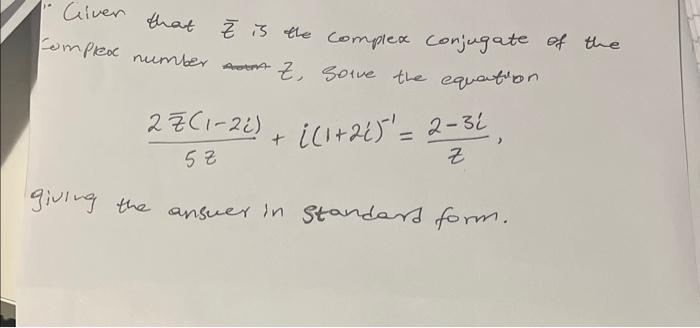 Given that z̄ is the complex conjugate of the
complex number z, solve the equation
2z̄(1-2i)/5z + i(1+2i)⁻¹ = 2-3i/z,
giving the answer in standard form.